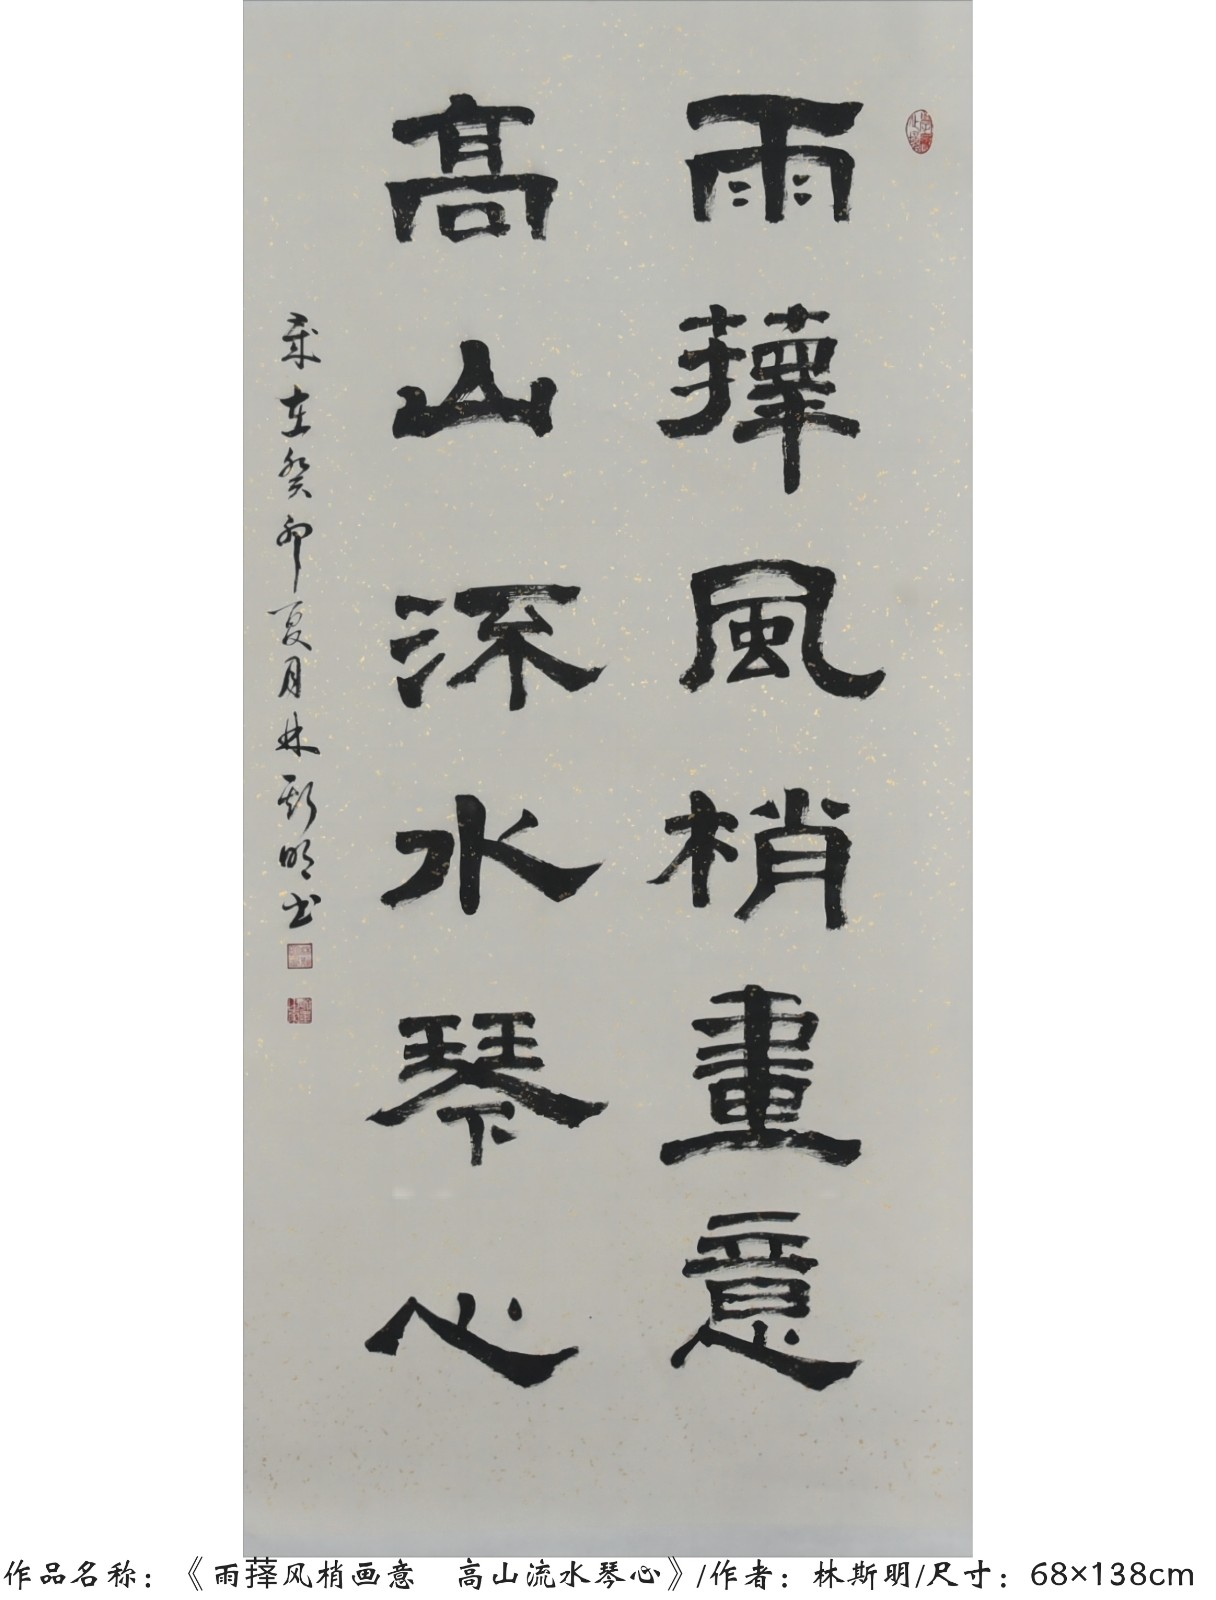 雨蘀風梢畫意
高山流水琴心
歲在癸卯夏月林斯明书
作品名称：《雨蘀风梢画意　高山流水琴心》/作者：林斯明/尺寸：68×138cm